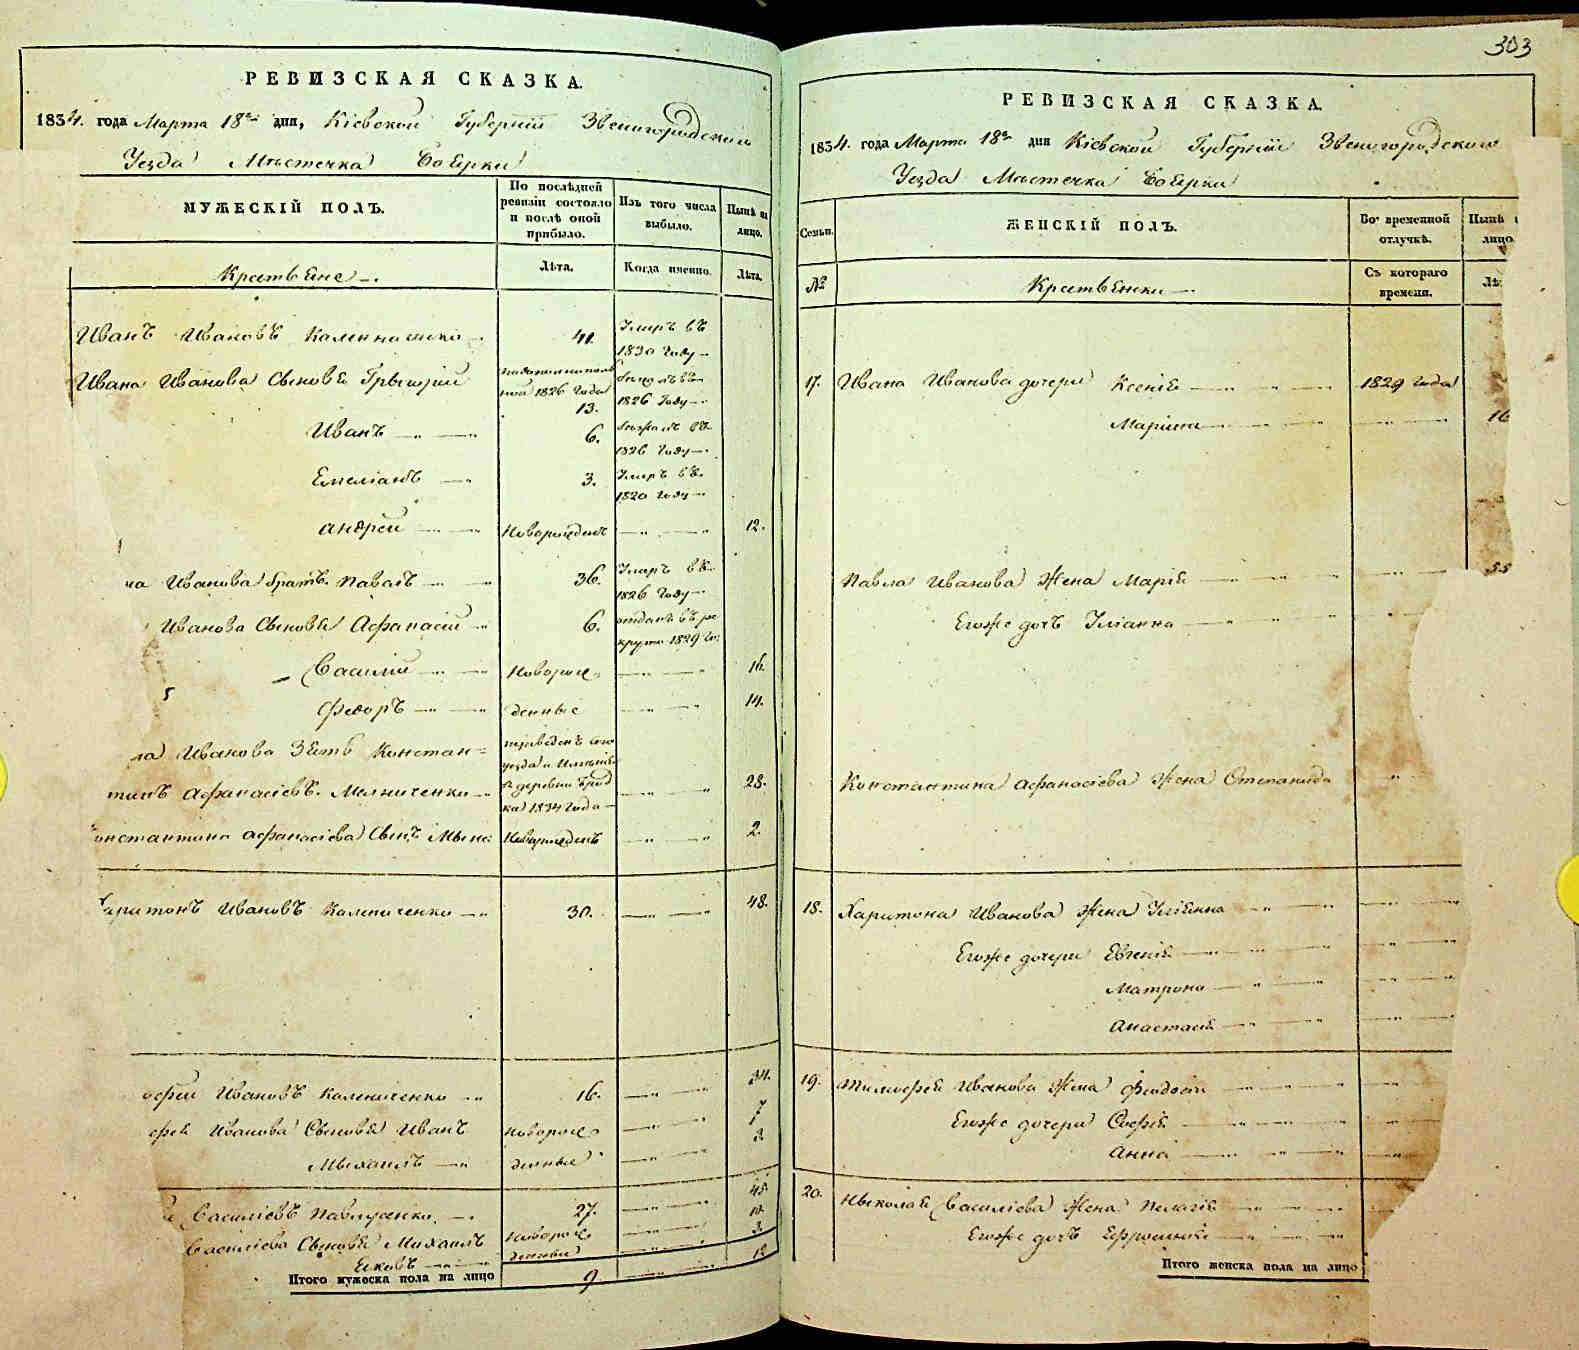 РЕВИЗСКАЯ СКАЗКА.
1834. года Марта 18го дня, Кіевской Губерніи Звенигородскаго
Уезда Мѣстечка Боерки
МУЖЕСКІЙ ПОЛЪ.
По послѣдней ревизіи состояло и послѣ оной прибыло.
Изъ того числа выбыло.
Нынѣ на лицо.
Лѣта.
Когда именно.
Лѣта.
Крестьяне
Иванъ Ивановъ 41. Умеръ въ 1830 году
Ивана Иванова Сыновья Григорій 1826 года 13. 1826 году
Иванъ 6. 1826 году
Емеліанъ 3. Умеръ въ 1820 году
Андрей Новорожденъ 12.
на Иванова братъ Павелъ 36. Умеръ въ 1826 году
Иванова Сыновья Афанасій 6. отданъ въ рекруты 1829 го:
Василій Новорож 16.
Федоръ денные 14.
ла Иванова Зять Констан=
тинъ Афанасіевъ Мельниченко 1834 года 28.
онстантина Афанасіева Сынъ Новорожденъ 2.
аритонъ Ивановъ Калениченко 30. 48.
офей Ивановъ Калениченко 16. 34.
фея Иванова Сыновья Иванъ Новорож 7
Михаилъ денные 3.
Василіевъ Павленко 27. 45
Василіева Сыновья Михаилъ Новорож 10.
Яковъ денные 3.
Итого мужеска пола на лицо 9 12
303
РЕВИЗСКАЯ СКАЗКА.
1834. года Марта 18го дня Кіевской Губерніи Звенигородскаго
Уезда Мѣстечка Боерки
Семьи.
ЖЕНСКІЙ ПОЛЪ.
Во временной отлучкѣ.
Нынѣ лицо
№
Крестьянки
Съ котораго времени.
Лѣ
17. Ивана Иванова дочери Ксенія 1829 года
Марина 16
Павла Иванова жена Марія 55
Егоже дочь Уліанна
Константина Афанасіева жена Степанида
18. Харитона Иванова жена Уліянна
Егоже дочери Евгенія
Матрона
Анастасія
19. Тимофея Иванова жена Феодосія
Егоже дочери Софія
Анна
20. Николая Василіева жена Пелагія
Егоже дочь Ефросинія
Итого женска пола на лицо